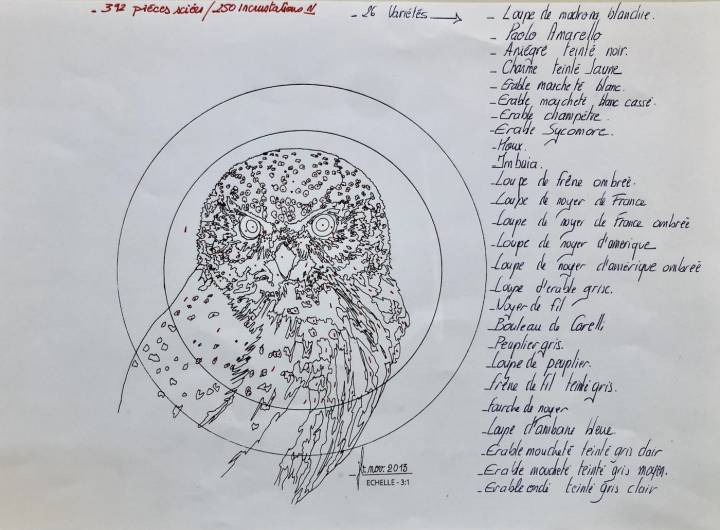 - 392 pièces sciées / 250 incrustations N
- 26 Variétés
- Loupe de madrona blanchie.
- Paolo Amarello
- Aniégré teinté noir.
- Charme teinté Jaune
- Erable moucheté blanc.
- Erable moucheté blanc cassé.
- Erable champêtre.
- Erable Sycomore.
- Houx.
- Imbuia.
- Loupe de frêne ombreé.
- Loupe de noyer de France
- Loupe de noyer de France ombreé
- Loupe de noyer d'amérique
- Loupe de noyer d'amérique ombreé
- Loupe d'érable grise.
- Noyer de fil
- Bouleau de Carelli
- Peuplier gris.
- Loupe de peuplier.
- Frêne de fil teinté gris.
- fourche de noyer
- Loupe d'amboine bleue
- Erable moucheté teinté gris clair
- Erable moucheté teinté gris moyen.
- Erable ondé teinté gris clair
nov. 2013
ECHELLE - 3:1